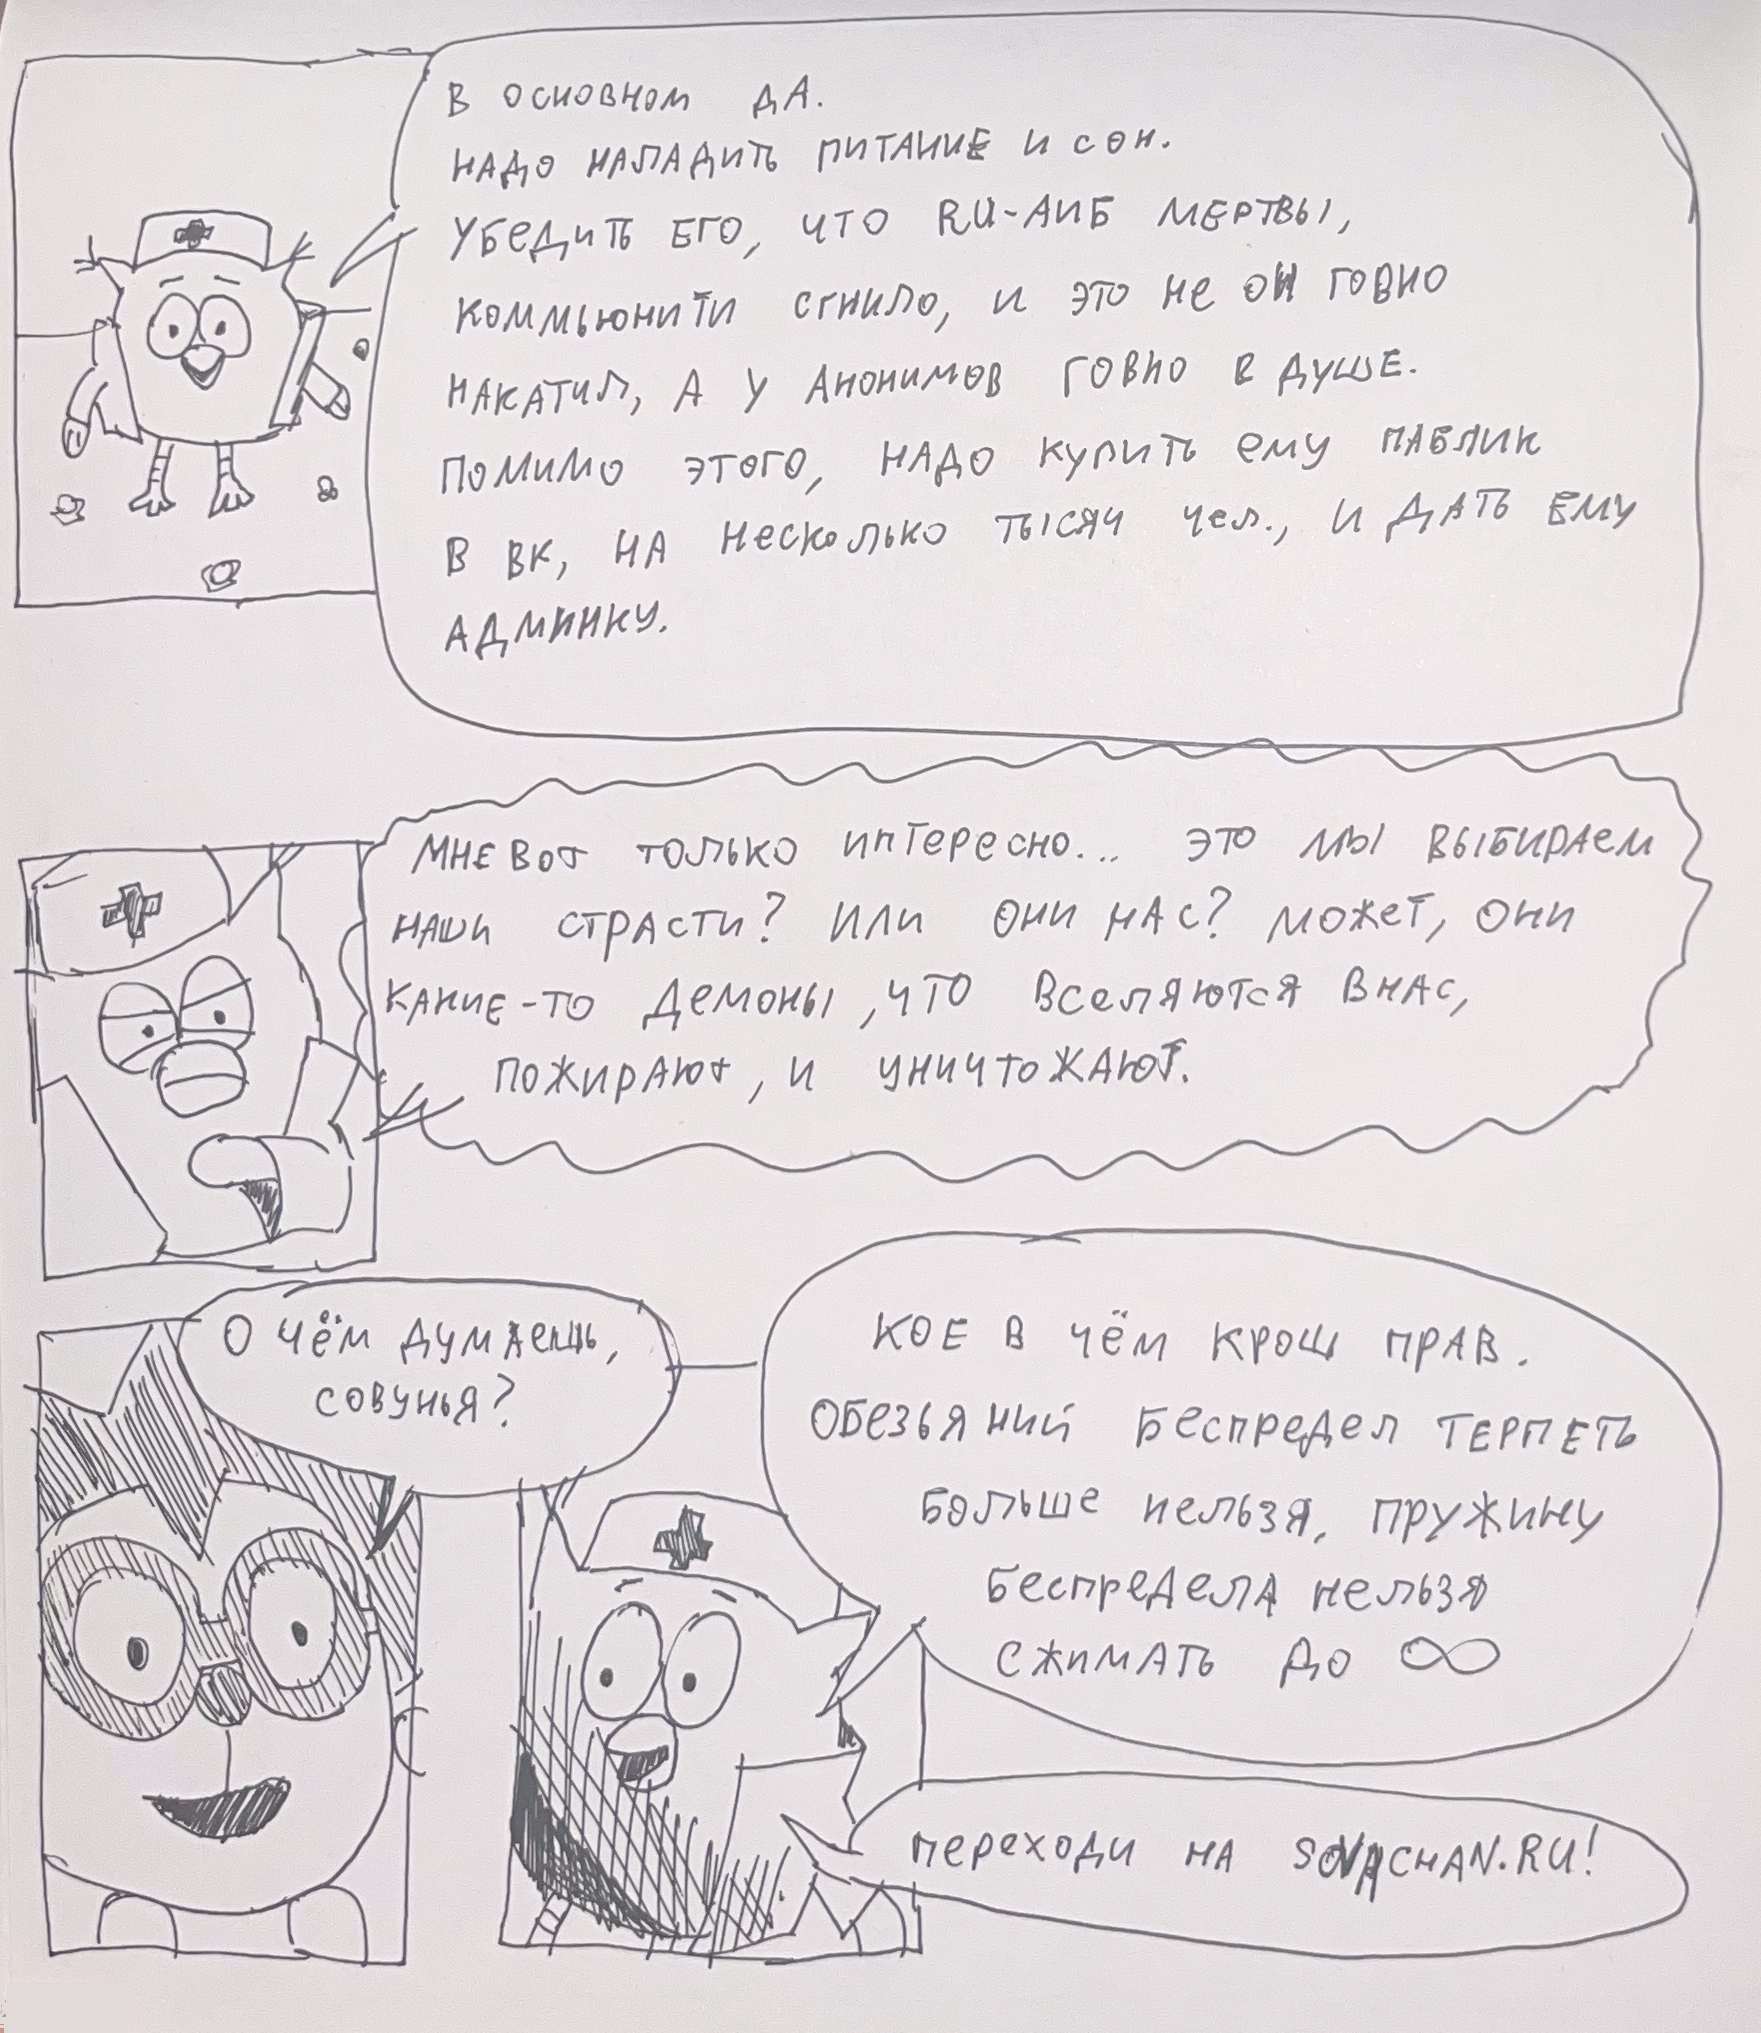 В основном да.
Надо наладить питание и сон.
Убедить его, что RU-АИБ мертвы,
коммьюнити сгнило, и это не он говно
накатил, а у анонимов говно в душе.
Помимо этого, надо купить ему паблик
в вк, на несколько тысяч чел., и дать ему
админку.
Мне вот только интересно... это мы выбираем
наши страсти? Или они нас? Может, они
какие-то демоны, что вселяются в нас,
пожирают, и уничтожают.
О чём думаешь,
Совунья?
Кое в чём Крош прав.
Обезьяний беспредел терпеть
больше нельзя, пружину
беспредела нельзя
сжимать до ∞
Переходи на SOVACHAN.RU!